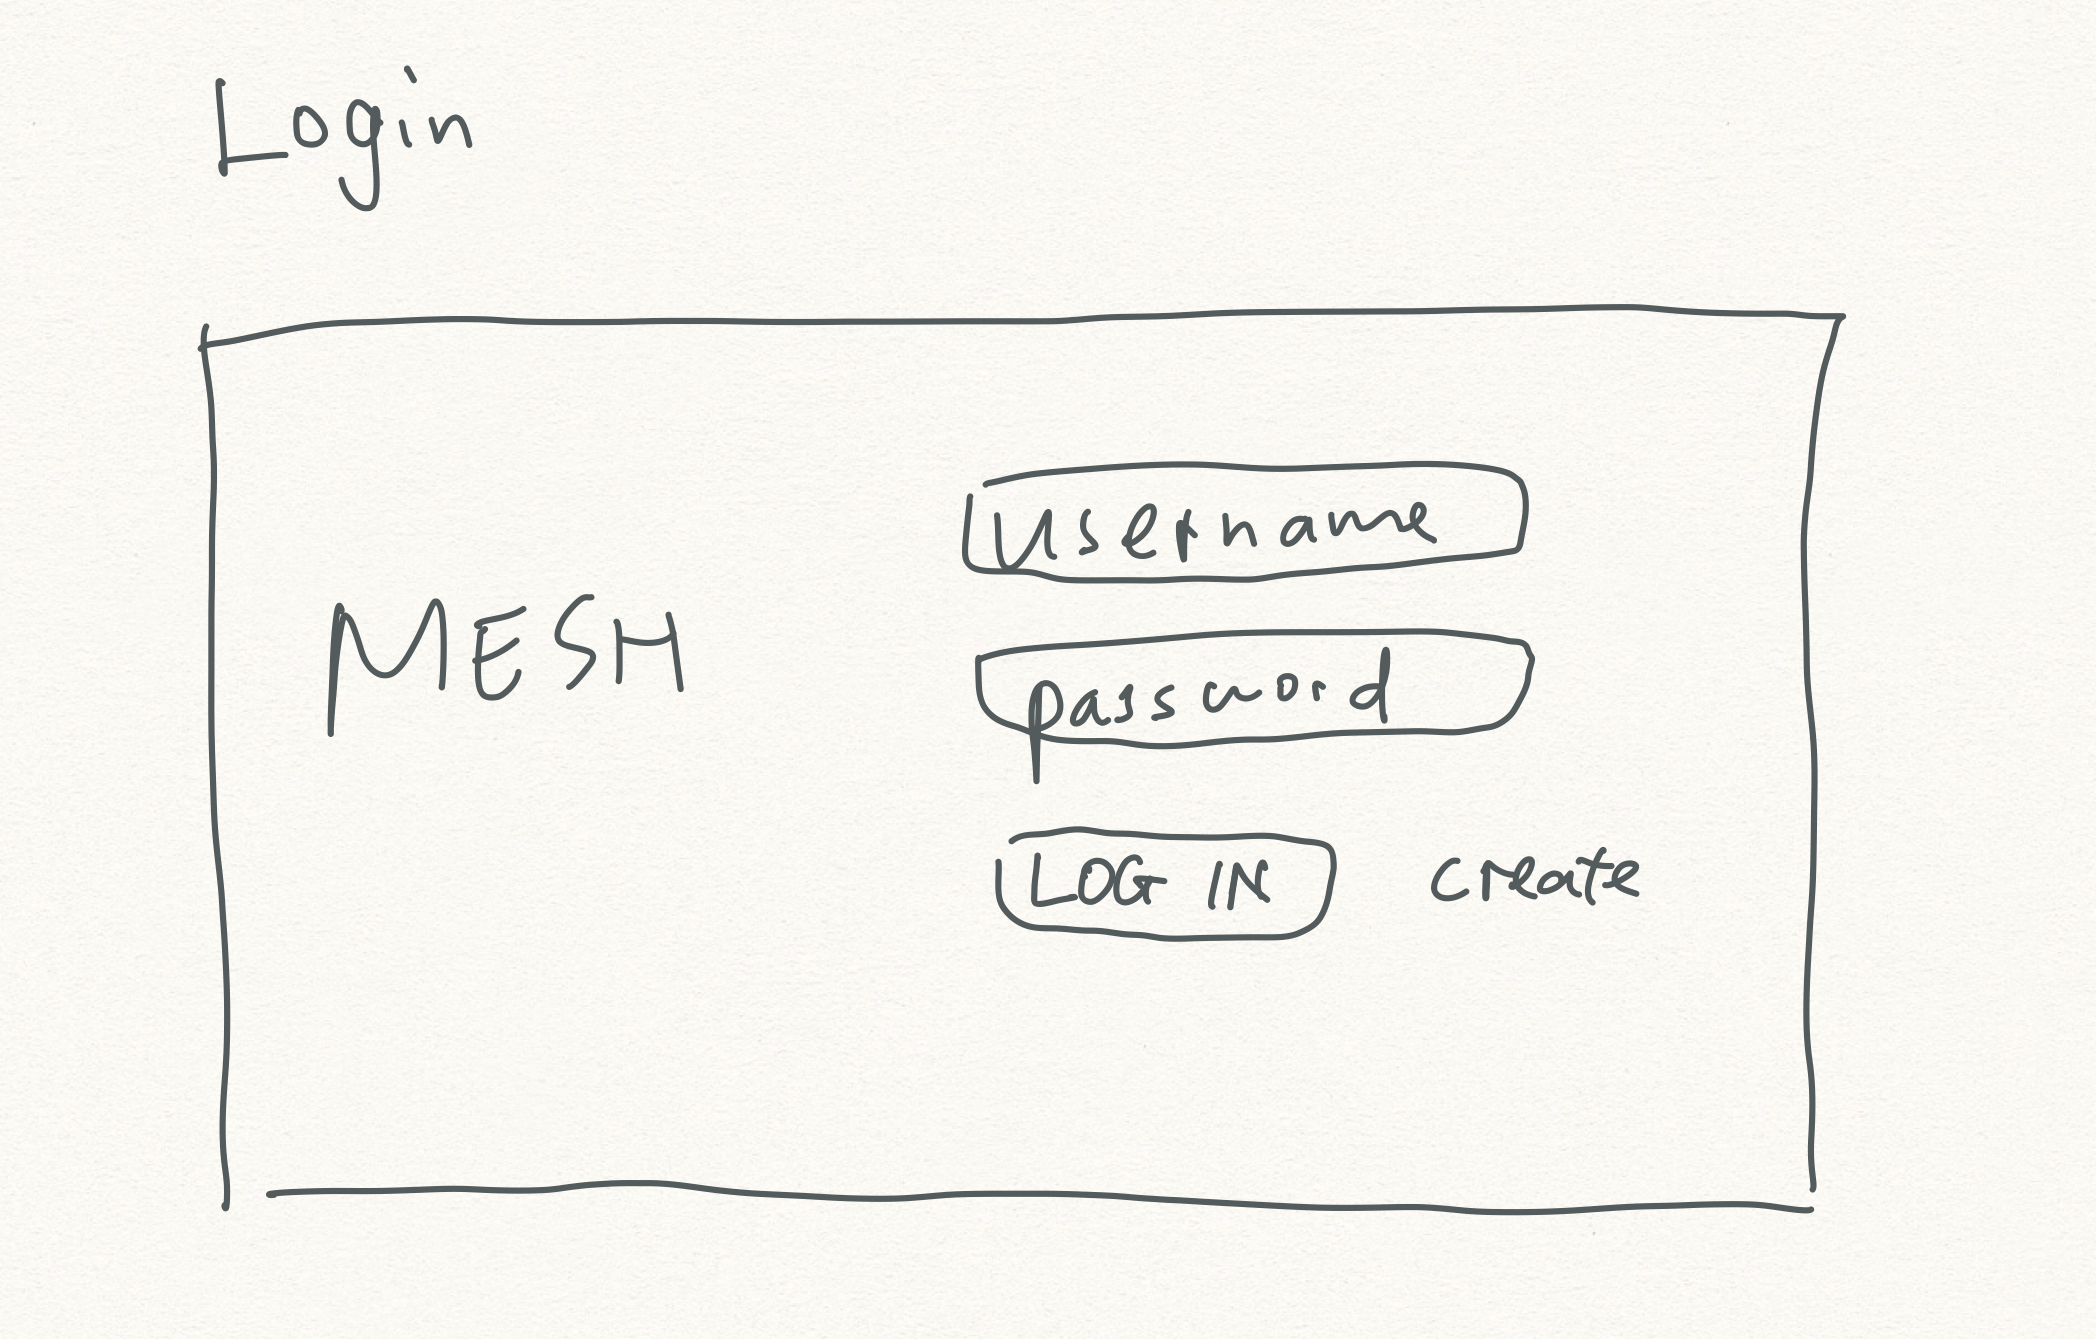 Login
MESH
username
password
LOG IN
create